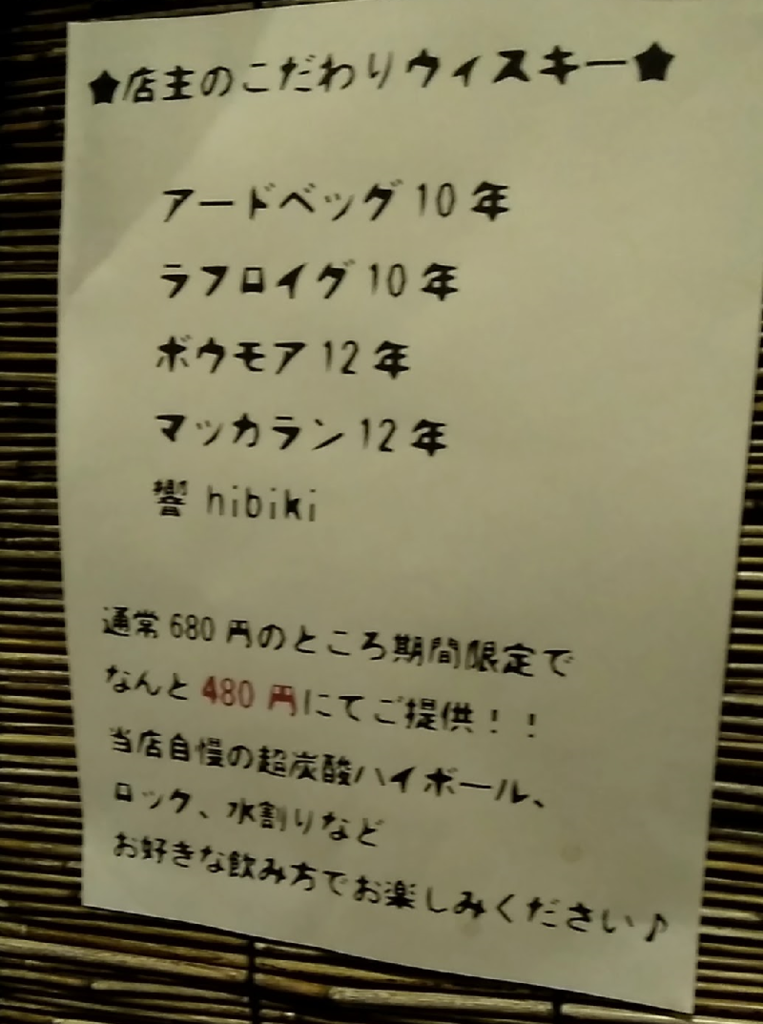 ★店主のこだわりウィスキー★
アードベッグ10年
ラフロイグ10年
ボウモア12年
マッカラン12年
響 hibiki
通常680円のところ期間限定で
なんと480円にてご提供！！
当店自慢の超炭酸ハイボール、
ロック、水割りなど
お好きな飲み方でお楽しみください♪